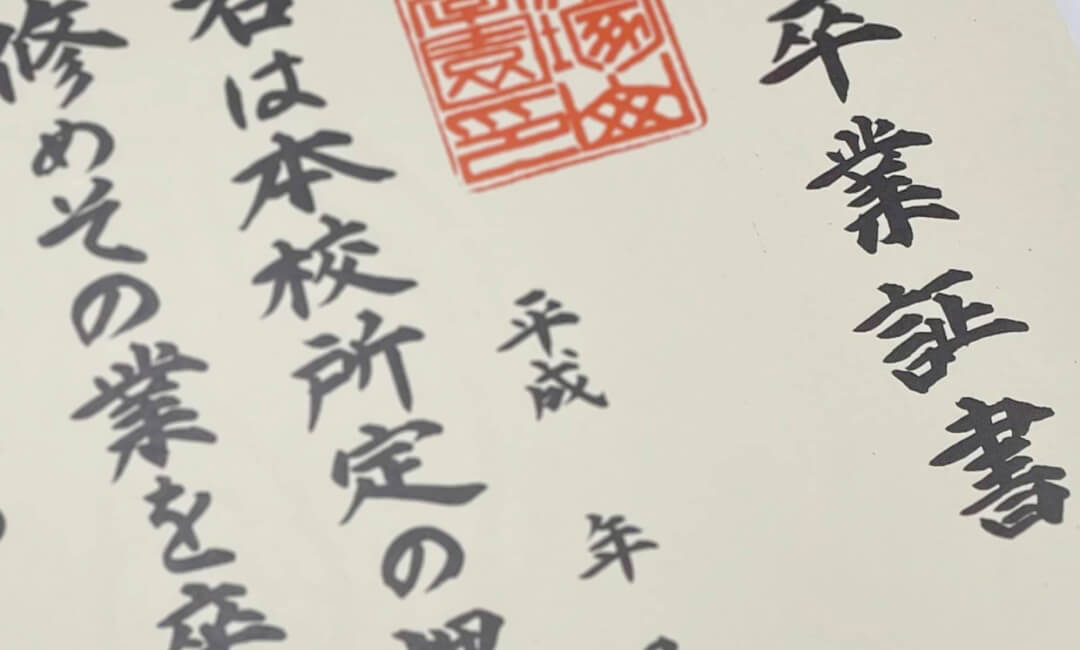 卒業証書
平成
年
君は本校所定の課
修めその業を卒